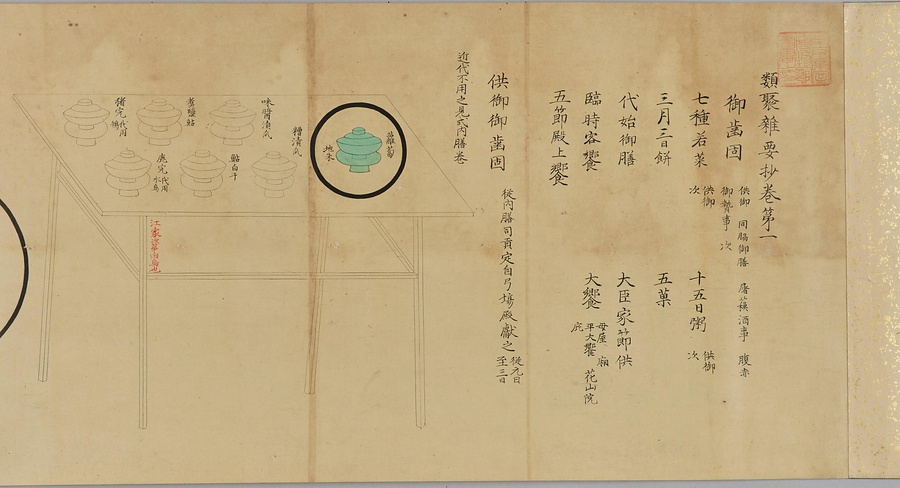 類聚雜要抄卷第一
御齒固
供御 同臈御膳 屠蘇酒事 腹赤
御贄事 次
七種若菜 供御 次
十五日粥 供御 次
三月三日餅
五菓
代始御膳
大臣家節供
臨時客饗
大饗 母屋 廂 平大饗 花山院 庇
五節殿上饗
供御御齒固 從内膳司
貢定自弓場殿獻之 從元日至三日
近代不用之見式内膳卷
蘿蔔
地朱
味醬漬瓜
糟漬瓜
煮鹽鮎
鮎白干
猪宍 代用鴨
鹿宍 代用水鳥